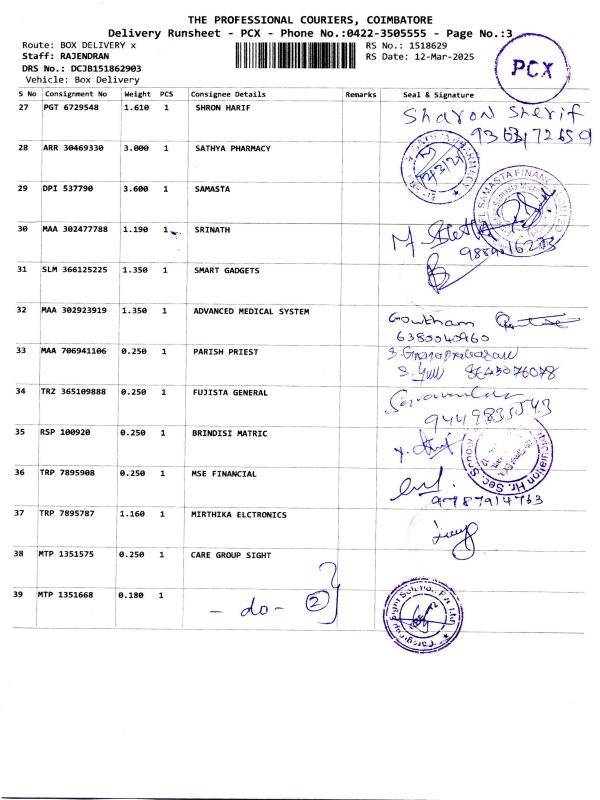 THE PROFESSIONAL COURIERS, COIMBATORE
Delivery Runsheet - PCX - Phone No.:0422-3505555 - Page No.:3
Route: BOX DELIVERY x
RS No.: 1518629
Staff: RAJENDRAN
RS Date: 12-Mar-2025
DRS No.: DCJB151862903
Vehicle: Box Delivery
PCX
S No Consignment No Weight PCS Consignee Details Remarks Seal & Signature
27 PGT 6729548 1.610 1 SHRON HARIF
Sharon Sherif
28 ARR 30469330 3.000 1 SATHYA PHARMACY
29 DPI 537790 3.600 1 SAMASTA
30 MAA 302477788 1.190 1 SRINATH
31 SLM 366125225 1.350 1 SMART GADGETS
32 MAA 302923919 1.350 1 ADVANCED MEDICAL SYSTEM
Gowtham
6380040960
33 MAA 706941106 0.250 1 PARISH PRIEST
34 TRZ 365109888 0.250 1 FUJISTA GENERAL
35 RSP 100920 0.250 1 BRINDISI MATRIC
36 TRP 7895908 0.250 1 MSE FINANCIAL
9787914763
37 TRP 7895787 1.160 1 MIRTHIKA ELCTRONICS
38 MTP 1351575 0.250 1 CARE GROUP SIGHT
39 MTP 1351668 0.180 1
- do - 2